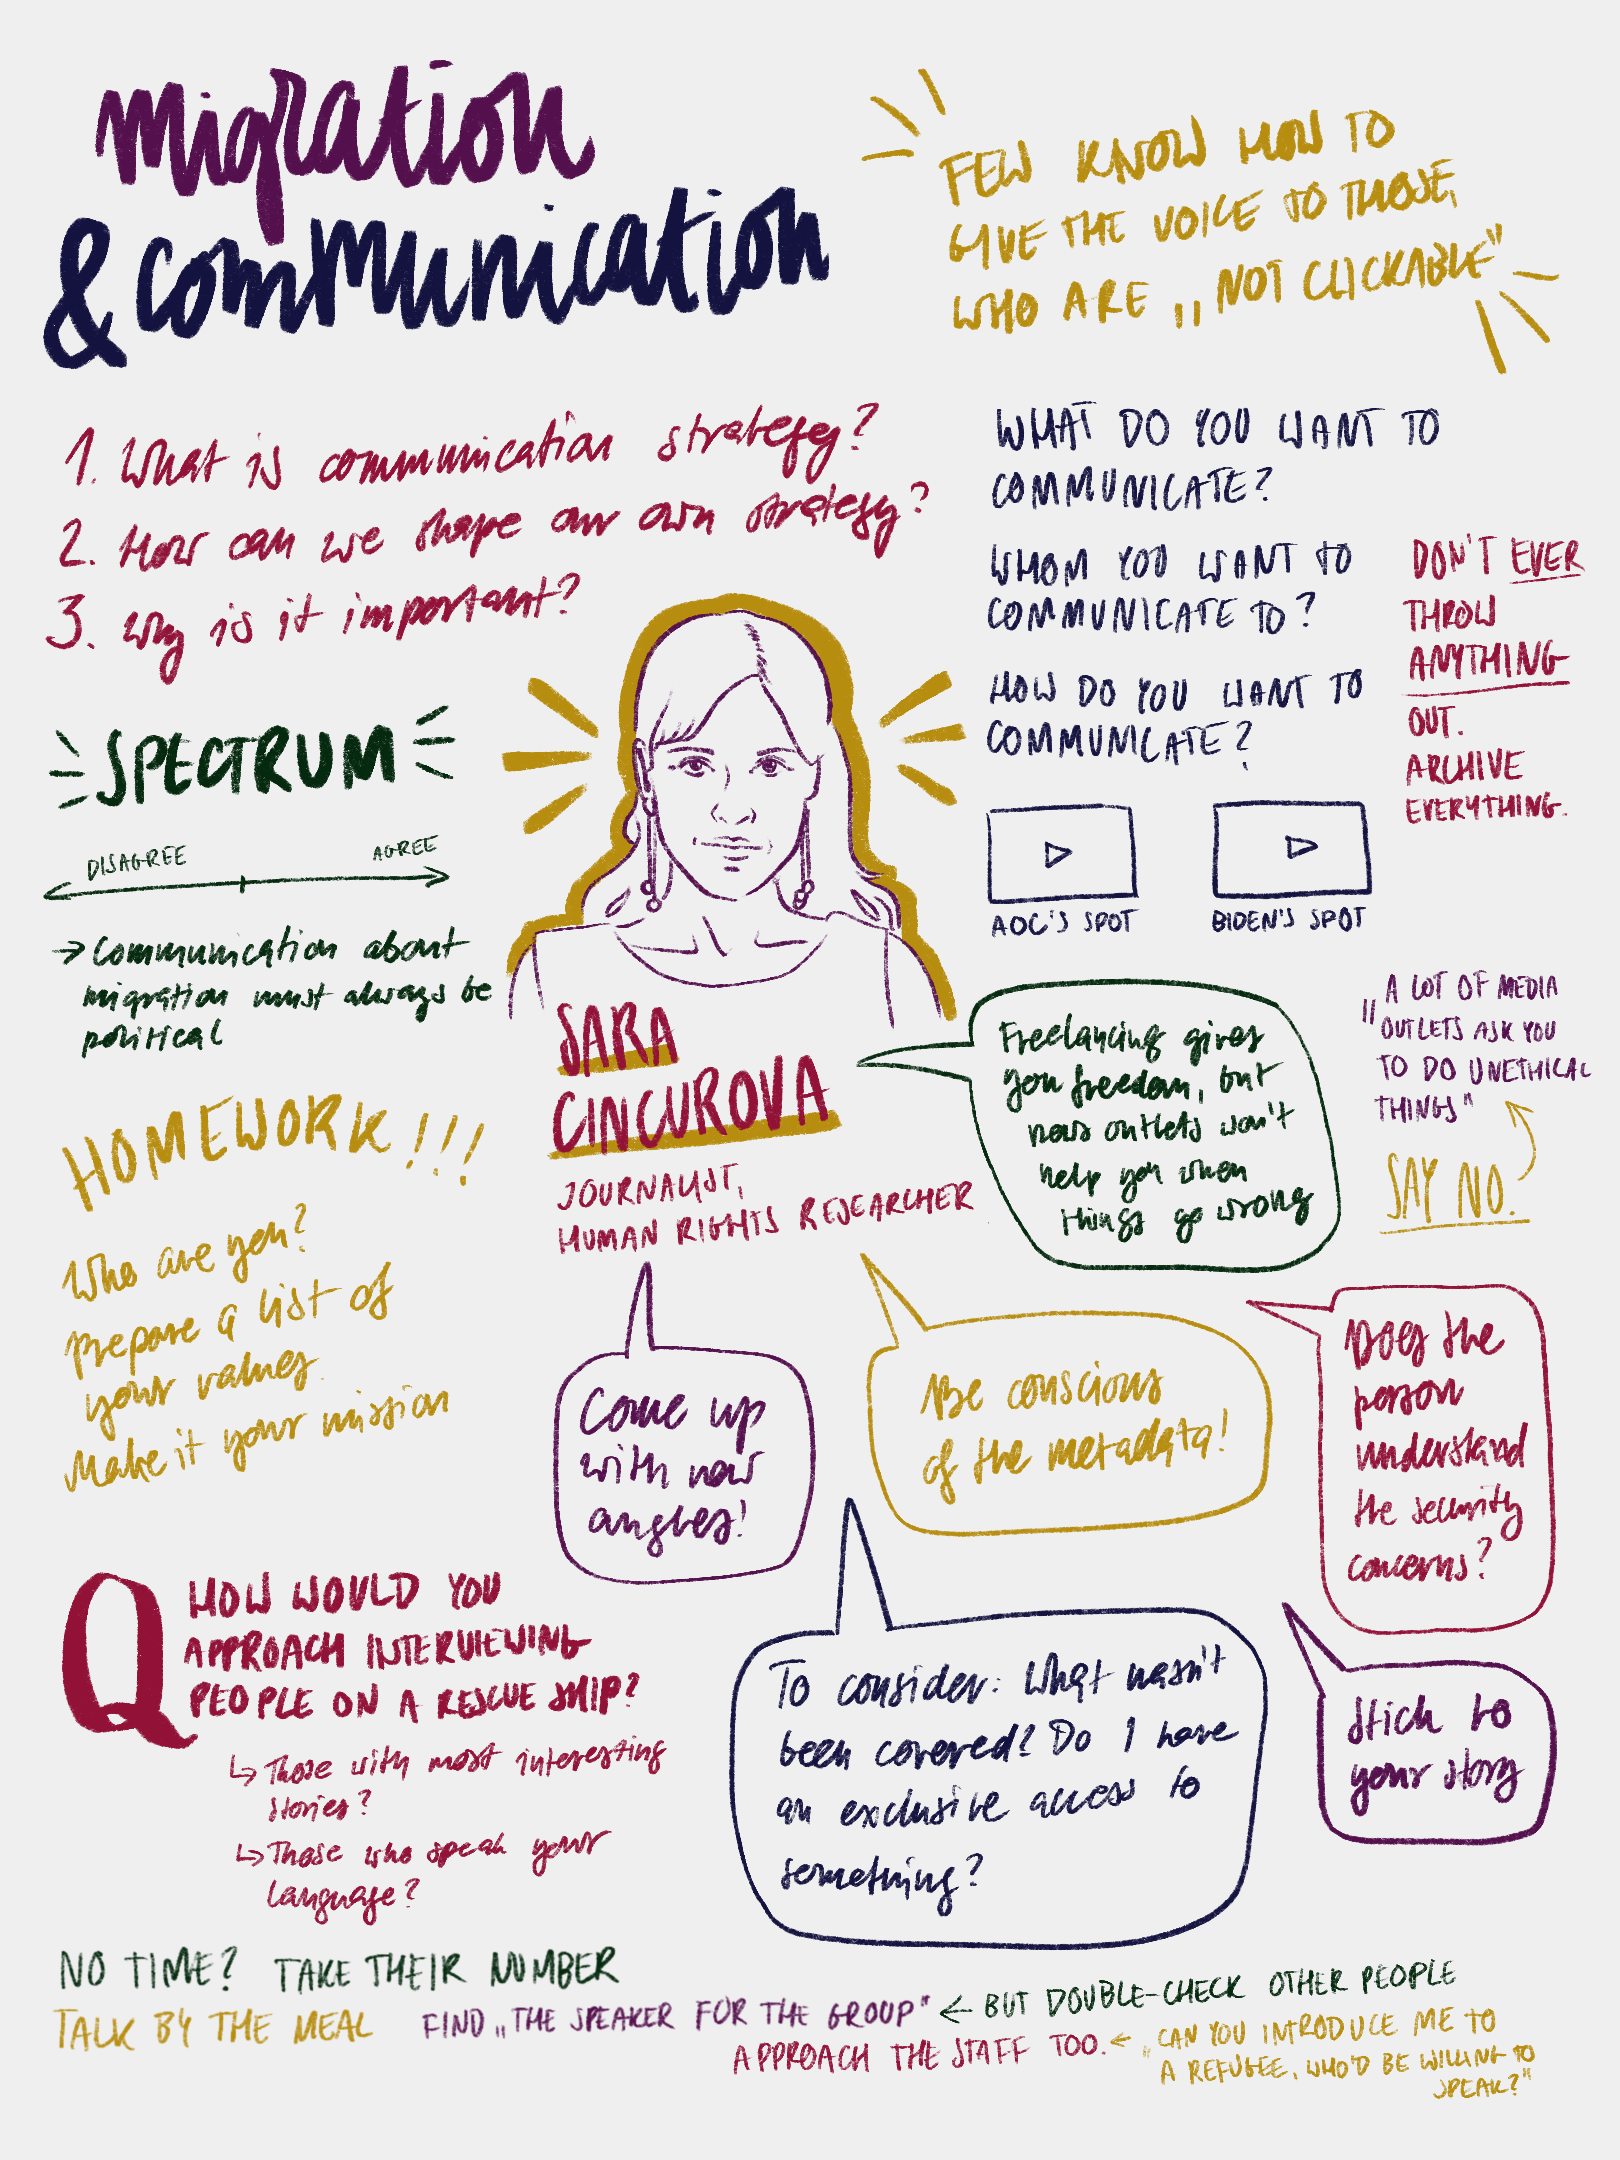 migration
& communication
FEW KNOW HOW TO
GIVE THE VOICE TO THOSE,
WHO ARE „NOT CLICKABLE"
1. What is communication strategy?
2. How can we shape our own strategy?
3. Why is it important?
SPECTRUM
DISAGREE AGREE
→ Communication about
migration must always be
political
HOMEWORK!!!
Who are you?
Prepare a list of
your values.
Make it your mission
WHAT DO YOU WANT TO
COMMUNICATE?
WHOM YOU WANT TO
COMMUNICATE TO?
HOW DO YOU WANT TO
COMMUNICATE?
DON'T EVER
THROW
ANYTHING
OUT.
ARCHIVE
EVERYTHING.
AOC'S SPOT
BIDEN'S SPOT
SARA
CINCUROVA
JOURNALIST,
HUMAN RIGHTS RESEARCHER
Freelancing gives
you freedom, but
news outlets won't
help you when
things go wrong
"A LOT OF MEDIA
OUTLETS ASK YOU
TO DO UNETHICAL
THINGS"
SAY NO.
Come up
with new
angles!
Be conscious
of the metadata!
Does the
person
understand
the security
concerns?
To consider: What hasn't
been covered? Do I have
an exclusive access to
something?
Stick to
your story
Q HOW WOULD YOU
APPROACH INTERVIEWING
PEOPLE ON A RESCUE SHIP?
↳ Those with most interesting
stories?
↳ Those who speak your
language?
NO TIME? TAKE THEIR NUMBER
TALK BY THE MEAL
FIND „THE SPEAKER FOR THE GROUP" ← BUT DOUBLE-CHECK OTHER PEOPLE
APPROACH THE STAFF TOO. ← „CAN YOU INTRODUCE ME TO
A REFUGEE, WHO'D BE WILLING TO
SPEAK?"